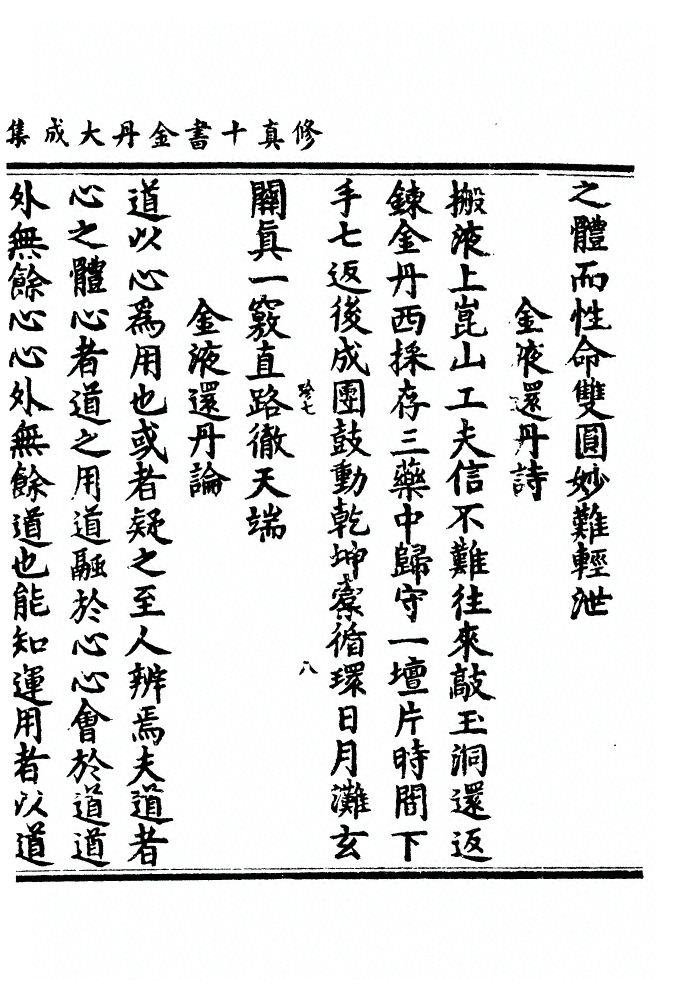 修真十書金丹大成集
之體而性命雙圓妙難輕泄
金液還丹詩
搬液上崑山工夫信不難往來敲玉洞還返
鍊金丹西採存三藥中歸守一壇片時間下
手七返後成團鼓動乾坤橐循環日月灘玄
珍七
八
關眞一竅直路徹天端
金液還丹論
道以心爲用也或者疑之至人辨焉夫道者
心之體心者道之用道融於心心會於道道
外無餘心心外無餘道也能知運用者以道